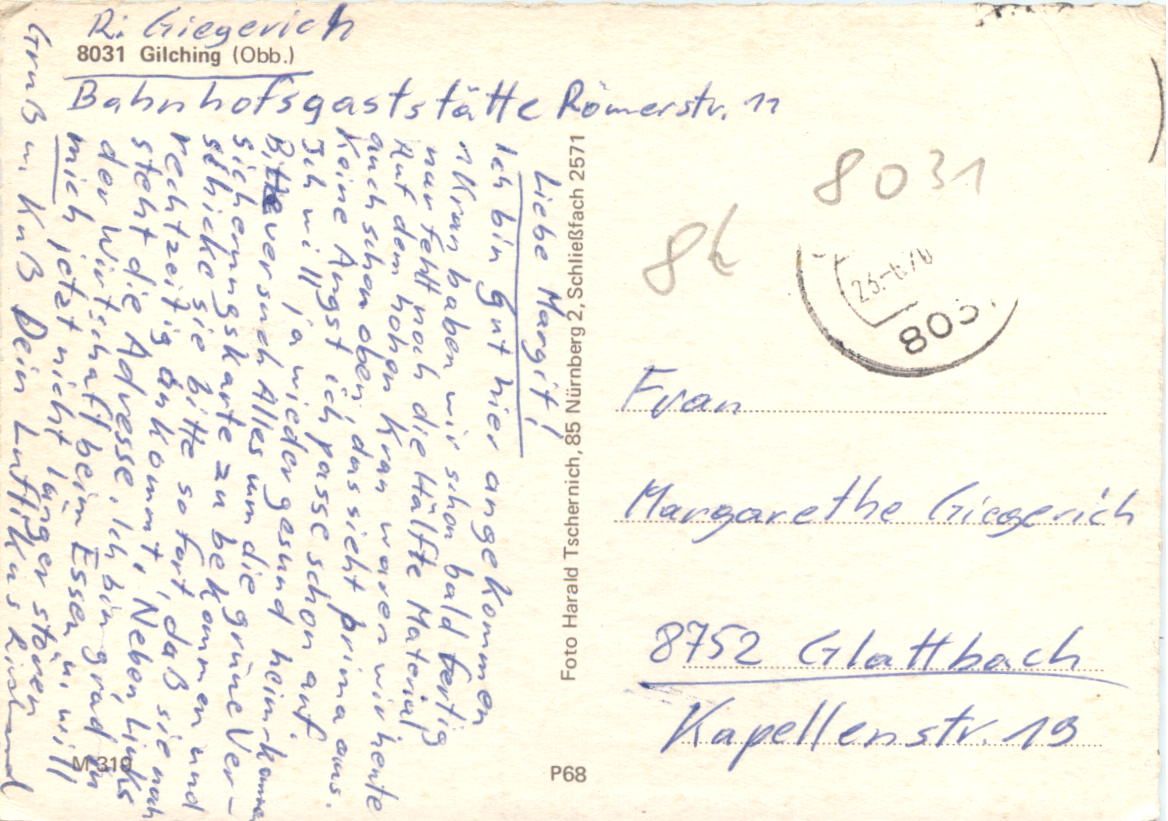 R. Giegerich
8031 Gilching (Obb.)
Bahnhofsgaststätte Römerstr. 11
Liebe Margit!
Ich bin gut hier angekommen
1 Kran haben wir schon bald fertig
nur fehlt noch die Hälfte Material
Auf dem hohen Kran waren wir heute
auch schon oben, das sieht prima aus.
Keine Angst ich passe schon auf.
Ich will ja wieder gesund heim-kommen
Bitte versuch Alles um die grüne Ver-
sicherungskarte zu bekommen und
schicke sie bitte sofort daß sie noch
rechtzeitig ankommt, Neben links
steht die Adresse. Ich bin grad in
der Wirtschaft beim Essen u. will
mich jetzt nicht länger stören
Gruß u. Kuß Dein Luftikus
Foto Harald Tschernich, 85 Nürnberg 2, Schließfach 2571
M 319
P68
8031
23.-6.70
803
Frau
Margarethe Giegerich
8752 Glattbach
Kapellenstr. 19